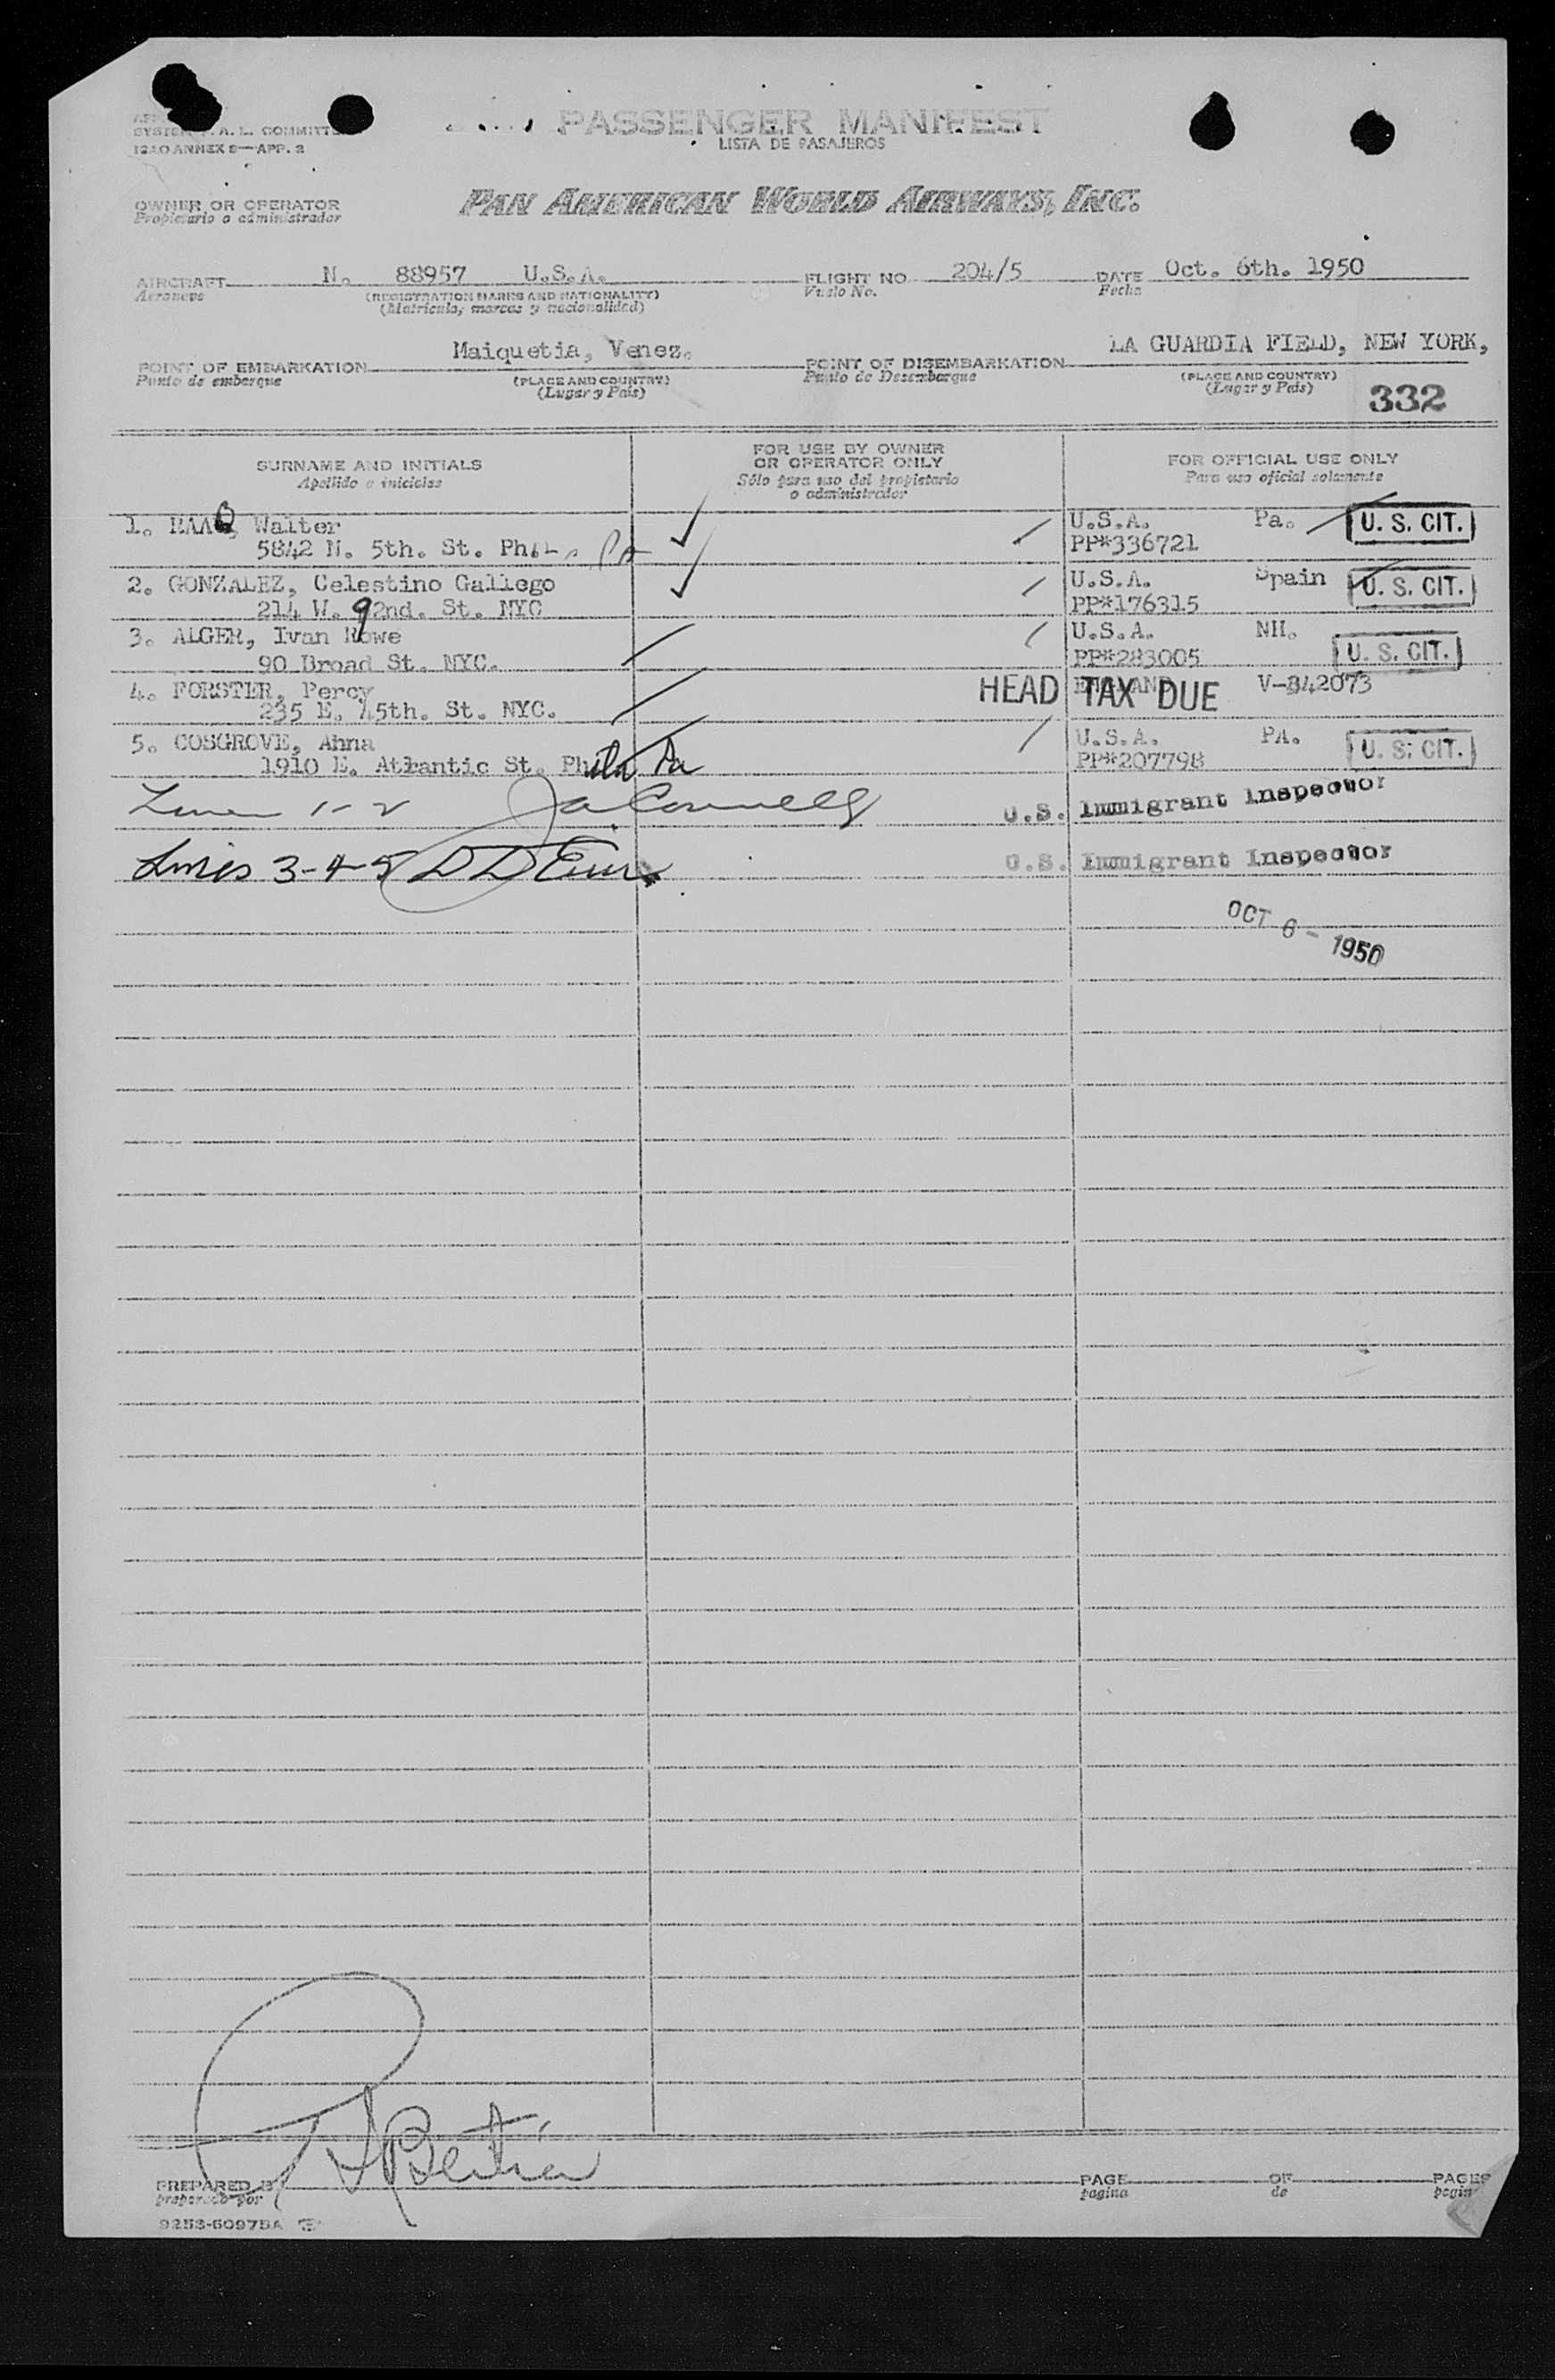 SYSTEM A. L. COMMITT
ICAO ANNEX 9—APP. 2
PASSENGER MANIFEST
LISTA DE PASAJEROS
OWNER OR OPERATOR
Propietario o administrador
PAN AMERICAN WORLD AIRWAYS, INC.
AIRCRAFT N. 88957 U.S.A. FLIGHT NO. 204/5 DATE Oct. 6th. 1950
Aeronave (REGISTRATION MARKS AND NATIONALITY) Vuelo No. Fecha
(Matricula, marcas y nacionalidad)
POINT OF EMBARKATION Maiquetia, Venez. POINT OF DISEMBARKATION LA GUARDIA FIELD, NEW YORK,
Punto de embarque (PLACE AND COUNTRY) Punto de Desembarque (PLACE AND COUNTRY)
(Lugar y País) (Lugar y País)
332
SURNAME AND INITIALS FOR USE BY OWNER OR OPERATOR ONLY FOR OFFICIAL USE ONLY
Apellido e iniciales Sólo para uso del propietario o administrador Para uso oficial solamente
1. RAAB, Walter U.S.A. Pa. U. S. CIT.
5842 N. 5th. St. Phil. Pa PP*336721
2. GONZALEZ, Celestino Gallego U.S.A. Spain U. S. CIT.
214 W. 92nd. St. NYC PP*176315
3. ALGER, Ivan Rowe U.S.A. NH. U. S. CIT.
90 Broad St. NYC. PP*283005
4. FORSTER, Percy HEAD TAX DUE V-842073
235 E. 45th. St. NYC.
5. COSGROVE, Anna U.S.A. PA. U. S. CIT.
1910 E. Atlantic St. Phila Pa PP*207798
Lines 1-2 U.S. Immigrant Inspector
Lines 3-4-5 U.S. Immigrant Inspector
OCT 6 - 1950
PREPARED BY PAGE OF PAGES
preparado por pagina de
9253-60975A